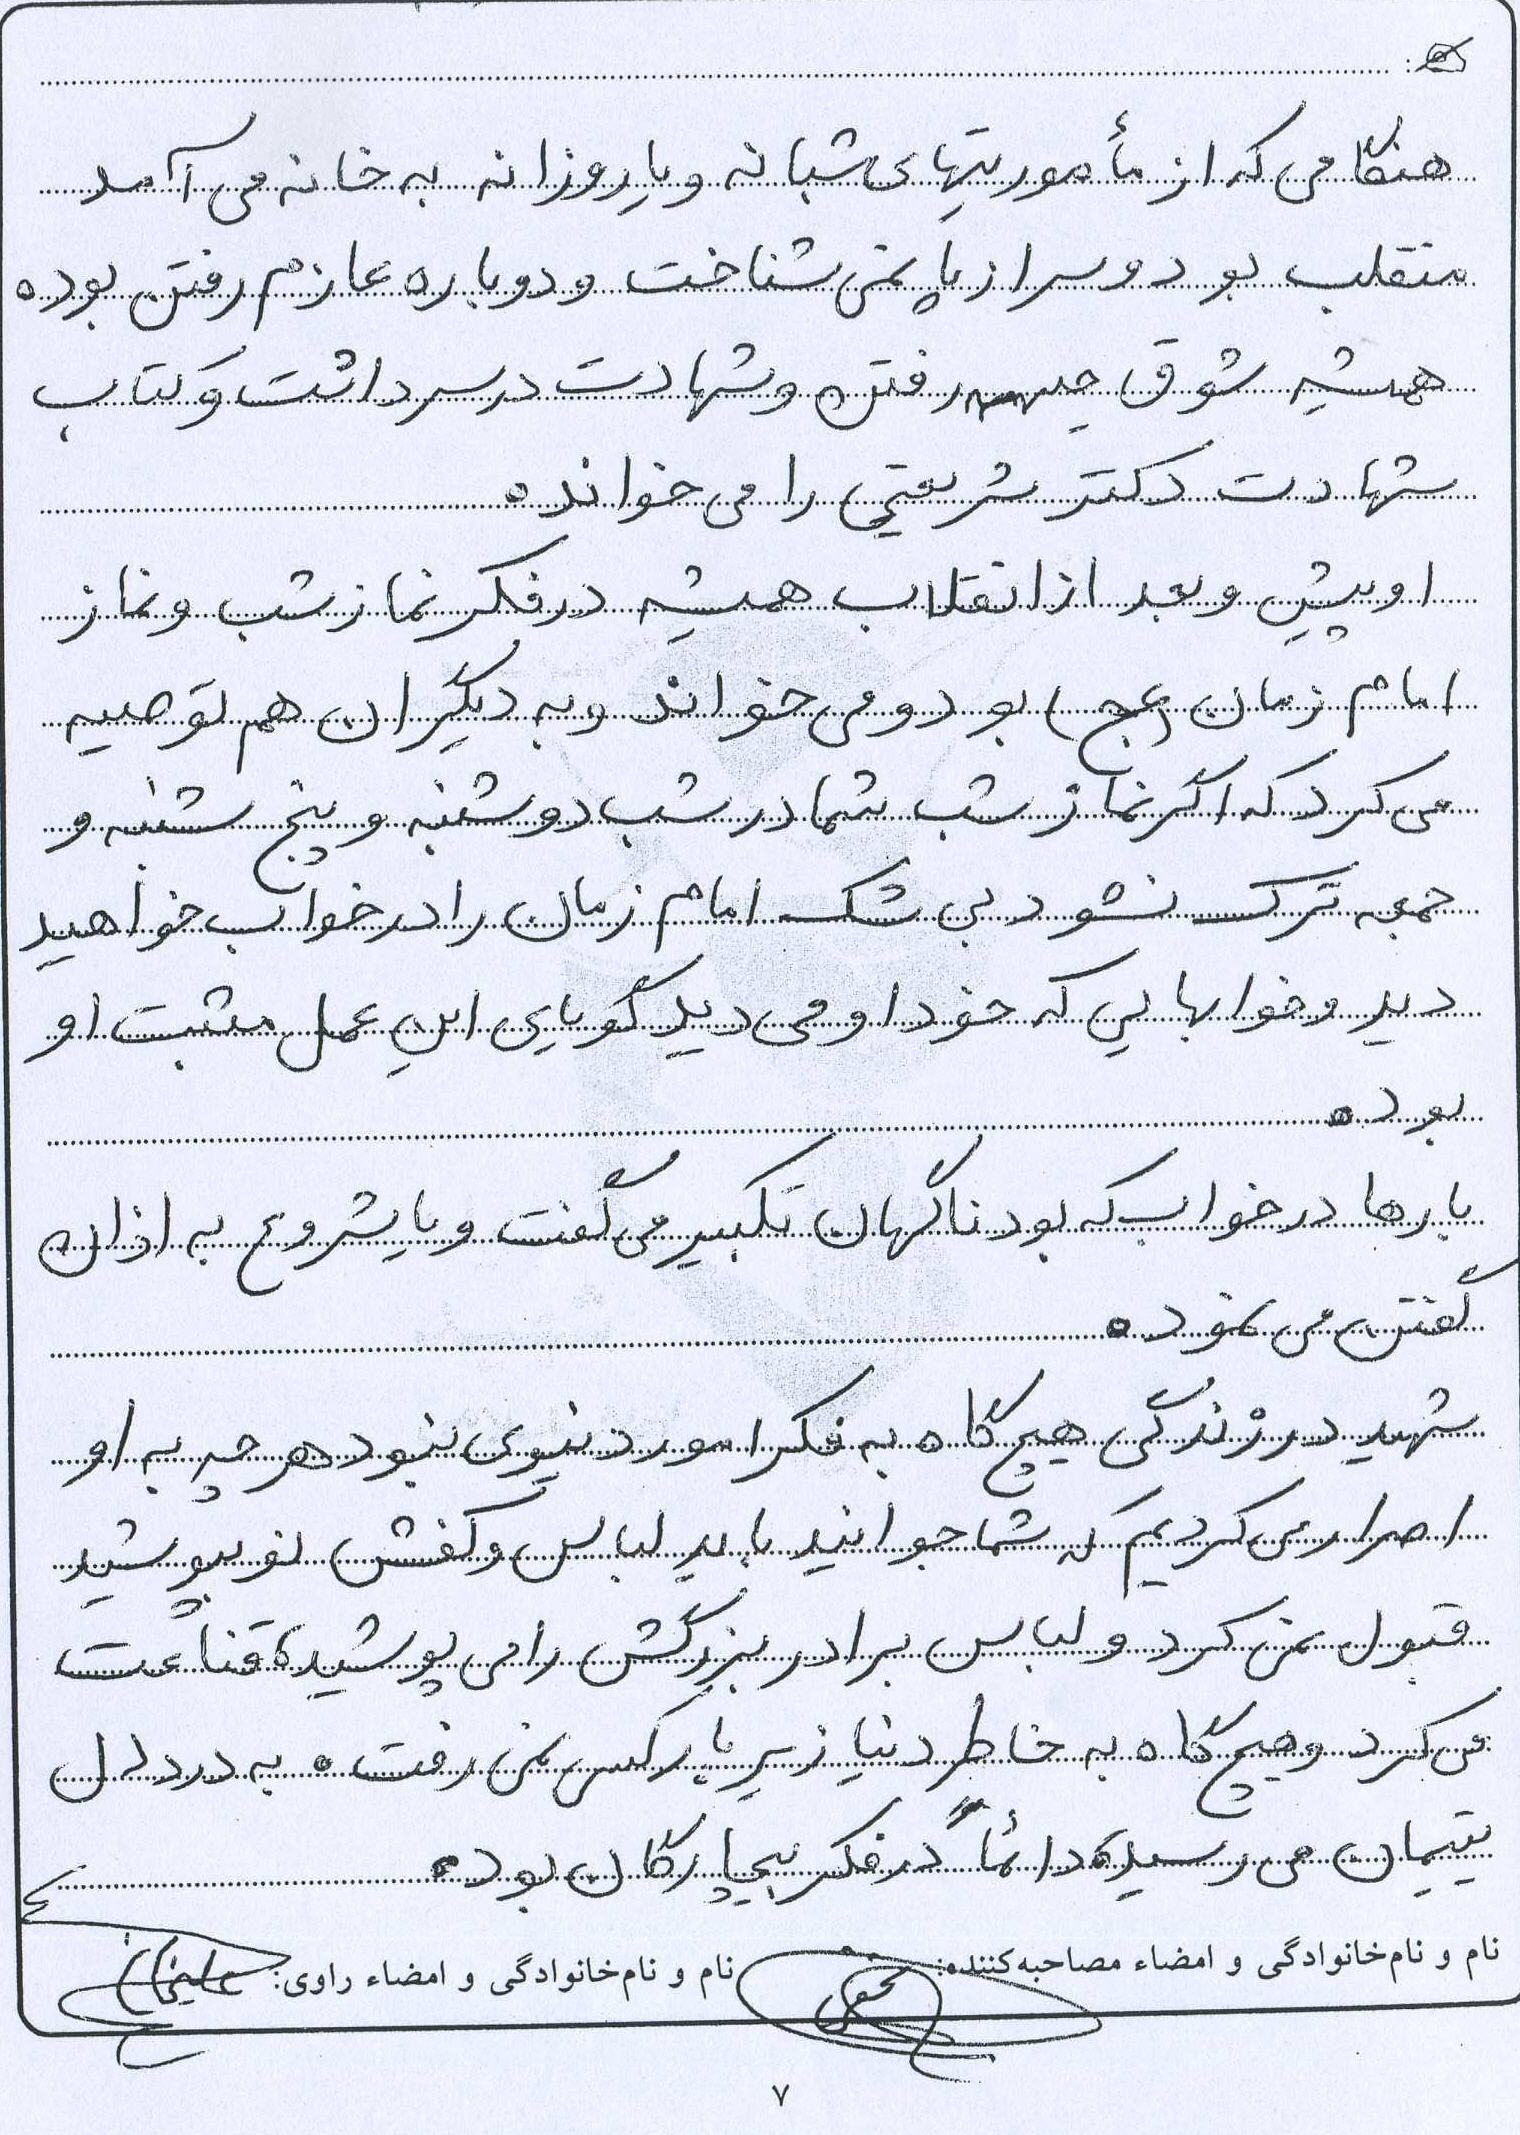 هنگامی که از مأموریتهای شبانه و یا روزانه به خانه می آمد
منقلب بود و سر از پا نمی شناخت و دوباره عازم رفتن بود.
همیشه شوق جبهه رفتن و شهادت در سر داشت و کتاب
شهادت دکتر شریعتی را می خواند.
او پیش و بعد از انقلاب همیشه در فکر نماز شب و نماز
امام زمان (عج) بود و می خواند و به دیگران هم توصیه
می کرد که اگر نماز شب شما در شب دوشنبه و پنج شنبه و
جمعه ترک نشود بی شک امام زمان را در خواب خواهید
دید و خوابهایی که خود او می دید گویای این عمل مثبت او
بود.
بارها در خواب که بود ناگهان تکبیر می گفت و یا شروع به اذان
گفتن می نمود.
شهید در زندگی هیچ گاه به فکر امور دنیوی نبود هر چه به او
اصرار می کردیم که شما جوانید باید لباس و کفش نو بپوشید
قبول نمی کرد و لباس برادر بزرگش را می پوشید، قناعت
می کرد و هیچ گاه به خاطر دنیا زیر بار کسی نمی رفت. به درد دل
یتیمان می رسید، دائماً در فکر بیچارگان بود.
نام و نام‌خانوادگی و امضاء مصاحبه‌کننده: نام و نام‌خانوادگی و امضاء راوی:
۷